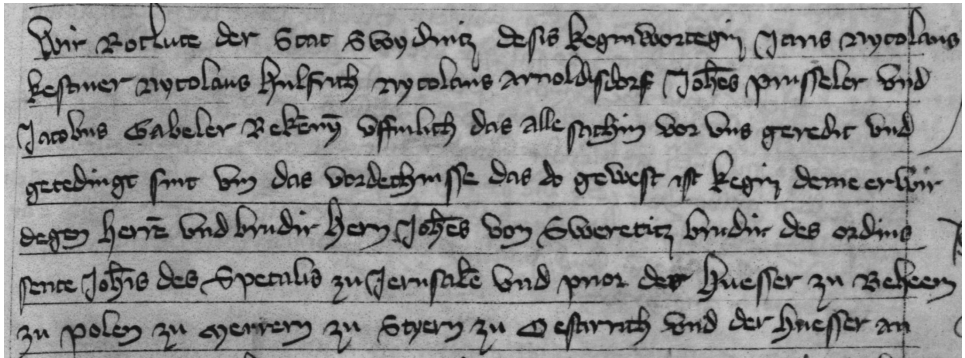 Wir Rotlute der Stat Swydnitz desis keginwortegin Jaris Nycolaus
kestner Nycolaus hulfrich Nycolaus Arnoldisdorf Joh̄es prusseler vnd
Jacobus Gabeler Bekēnȳ vffinlich das alle sachin vor vns geredit vnd
getedingt sint vm das vordechnisse das do gewest ist kegin deme erwir
degen herrē vnd brudir hern Joh̄es von Sweretitz brudir des ordins
sente Joh̄is des Spetalis zu Jerusalē vnd prior der huesser zu Beheem
zu polen zu Merrern zu Styern zu Oestirrich vnd der huesser an